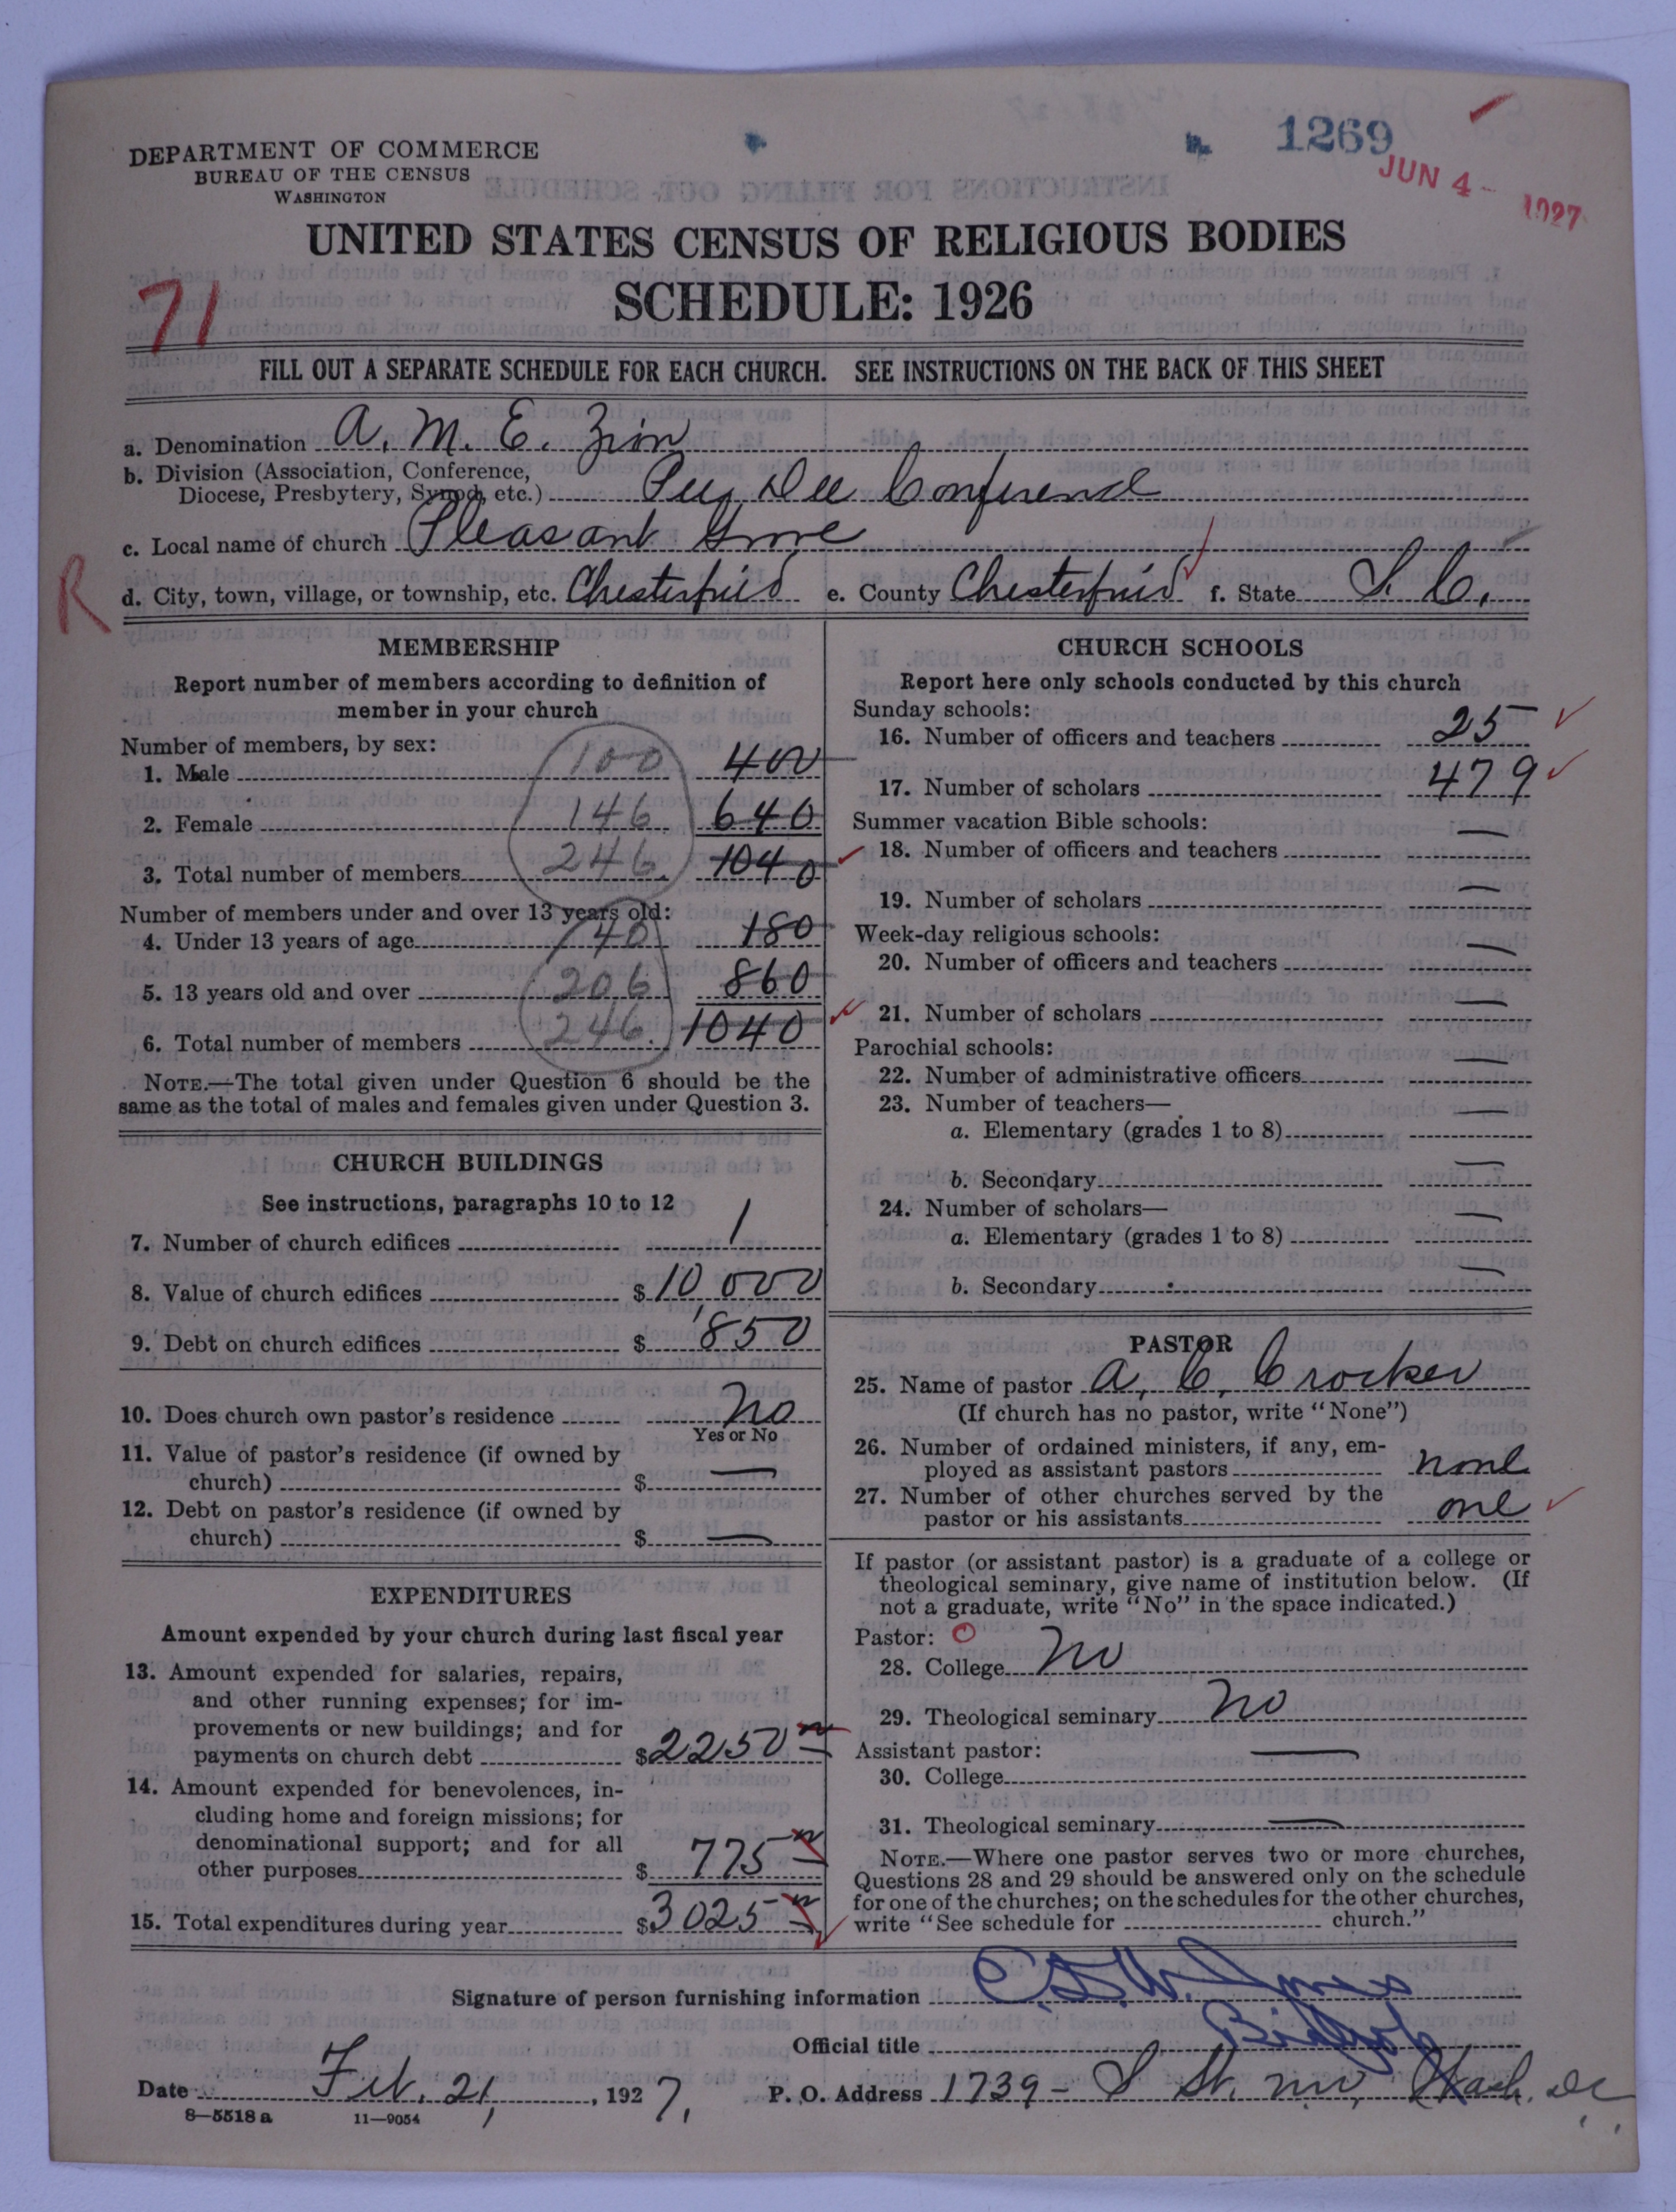 1269
JUN 4 - 1927
DEPARTMENT OF COMMERCE
BUREAU OF THE CENSUS
WASHINGTON
UNITED STATES CENSUS OF RELIGIOUS BODIES
SCHEDULE: 1926
71
FILL OUT A SEPARATE SCHEDULE FOR EACH CHURCH. SEE INSTRUCTIONS ON THE BACK OF THIS SHEET
a. Denomination A. M. E. Zion
b. Division (Association, Conference,
Diocese, Presbytery, Synod, etc.) Pee Dee Conference
c. Local name of church Pleasant Grove
R
d. City, town, village, or township, etc. Chesterfield e. County Chesterfield f. State S. C.
MEMBERSHIP
Report number of members according to definition of
member in your church
Number of members, by sex:
1. Male 100 400
2. Female 146 640
3. Total number of members 246 1040
Number of members under and over 13 years old:
4. Under 13 years of age 40 180
5. 13 years old and over 206 860
6. Total number of members 246 1040
NOTE.—The total given under Question 6 should be the
same as the total of males and females given under Question 3.
CHURCH BUILDINGS
See instructions, paragraphs 10 to 12
7. Number of church edifices 1
8. Value of church edifices $ 10,000
9. Debt on church edifices $ 850
10. Does church own pastor's residence No
Yes or No
11. Value of pastor's residence (if owned by
church) $ —
12. Debt on pastor's residence (if owned by
church) $ —
EXPENDITURES
Amount expended by your church during last fiscal year
13. Amount expended for salaries, repairs,
and other running expenses; for im-
provements or new buildings; and for
payments on church debt $ 2250
14. Amount expended for benevolences, in-
cluding home and foreign missions; for
denominational support; and for all
other purposes $ 775
15. Total expenditures during year $ 3025
CHURCH SCHOOLS
Report here only schools conducted by this church
Sunday schools:
16. Number of officers and teachers 25
17. Number of scholars 479
Summer vacation Bible schools:
18. Number of officers and teachers —
19. Number of scholars —
Week-day religious schools:
20. Number of officers and teachers —
21. Number of scholars —
Parochial schools:
22. Number of administrative officers —
23. Number of teachers—
a. Elementary (grades 1 to 8) —
b. Secondary —
24. Number of scholars—
a. Elementary (grades 1 to 8) —
b. Secondary —
PASTOR
25. Name of pastor A. C. Crocker
(If church has no pastor, write "None")
26. Number of ordained ministers, if any, em-
ployed as assistant pastors none
27. Number of other churches served by the
pastor or his assistants one
If pastor (or assistant pastor) is a graduate of a college or
theological seminary, give name of institution below. (If
not a graduate, write "No" in the space indicated.)
Pastor:
28. College No
29. Theological seminary No
Assistant pastor:
30. College —
31. Theological seminary —
NOTE.—Where one pastor serves two or more churches,
Questions 28 and 29 should be answered only on the schedule
for one of the churches; on the schedules for the other churches,
write "See schedule for church."
Signature of person furnishing information
Official title Bishop
Date Feb. 21, 1927. P. O. Address 1739 - S St. nw, Wash. DC
8—5518 a 11—9054